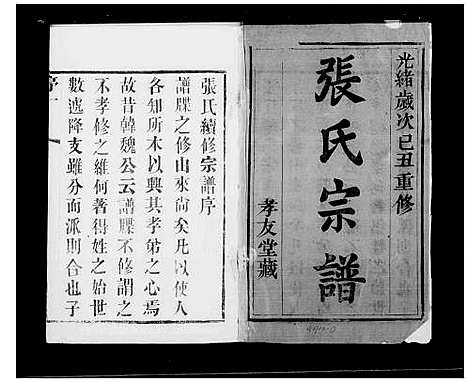 光緒歲次己丑重修
張氏宗譜
孝友堂藏
張氏續修宗譜序
譜牒之修由來尚矣凡以使人
各知所本以興其孝弟之心焉
故昔韓魏公云譜牒不修謂之
不孝修之維何著得姓之始世
數遞降支雖分而派則合也子